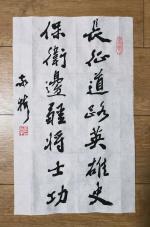 長征道路英雄史
保衛邊疆将士功